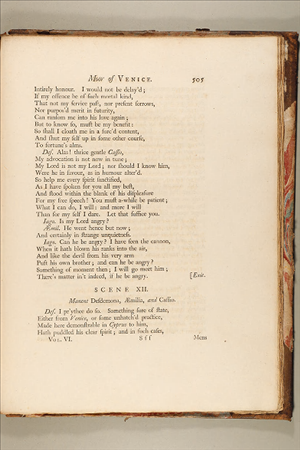 Moor of VENICE. 505
Intirely honour. I would not be delay'd;
If my offence be of such mortal kind,
That not my service past, nor present sorrows,
Nor purpos'd merit in futurity,
Can ransom me into his love again;
But to know so, must be my benefit:
So shall I cloath me in a forc'd content,
And shut my self up in some other course,
To fortune's alms.
Des. Alas! thrice gentle Cassio,
My advocation is not now in tune;
My Lord is not my Lord; nor should I know him,
Were he in favour, as in humour alter'd.
So help me every spirit sanctified,
As I have spoken for you all my best,
And stood within the blank of his displeasure
For my free speech! You must a-while be patient;
What I can do, I will: and more I will
Than for my self I dare. Let that suffice you.
Iago. Is my Lord angry?
Æmil. He went hence but now;
And certainly in strange unquietness.
Iago. Can he be angry? I have seen the cannon,
When it hath blown his ranks into the air,
And like the devil from his very arm
Puft his own brother; and can he be angry?
Something of moment then; I will go meet him;
There's matter in't indeed, if he be angry. [Exit.
SCENE XII.
Manent Desdemona, Æmilia, and Cassio.
Des. I pr'ythee do so. Something sure of state,
Either from Venice, or some unhatch'd practice,
Made here demonstrable in Cyprus to him,
Hath puddled his clear spirit; and in such cases,
VOL. VI. Sff Mens